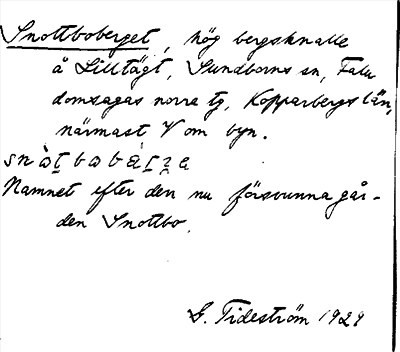 Snottboberget, hög bergsknalle
å Lilltägt, Sundborns sn, Falu
domsagas norra tg, Kopparbergs län,
närmast V om byn.
Namnet efter den nu försvunna går-
den Snottbo.
G. Tideström 1929